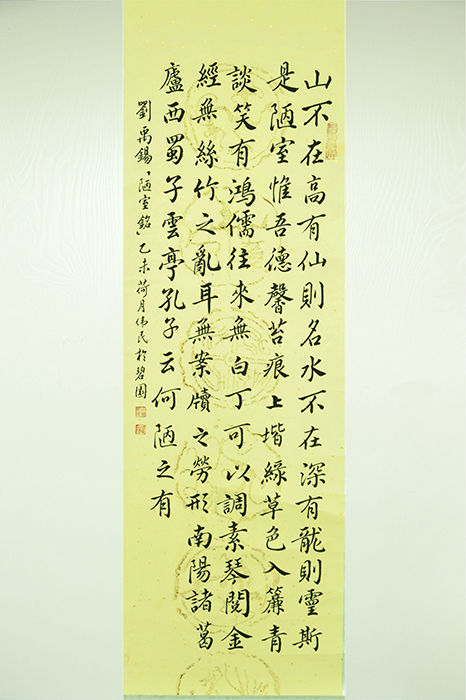 山不在高有仙則名水不在深有龍則靈斯
是陋室惟吾德馨苔痕上堦綠草色入簾青
談笑有鴻儒往來無白丁可以調素琴閱金
經無絲竹之亂耳無案牘之勞形南陽諸葛
廬西蜀子雲亭孔子云何陋之有
劉禹錫「陋室銘」乙未荷月伟民於碧園